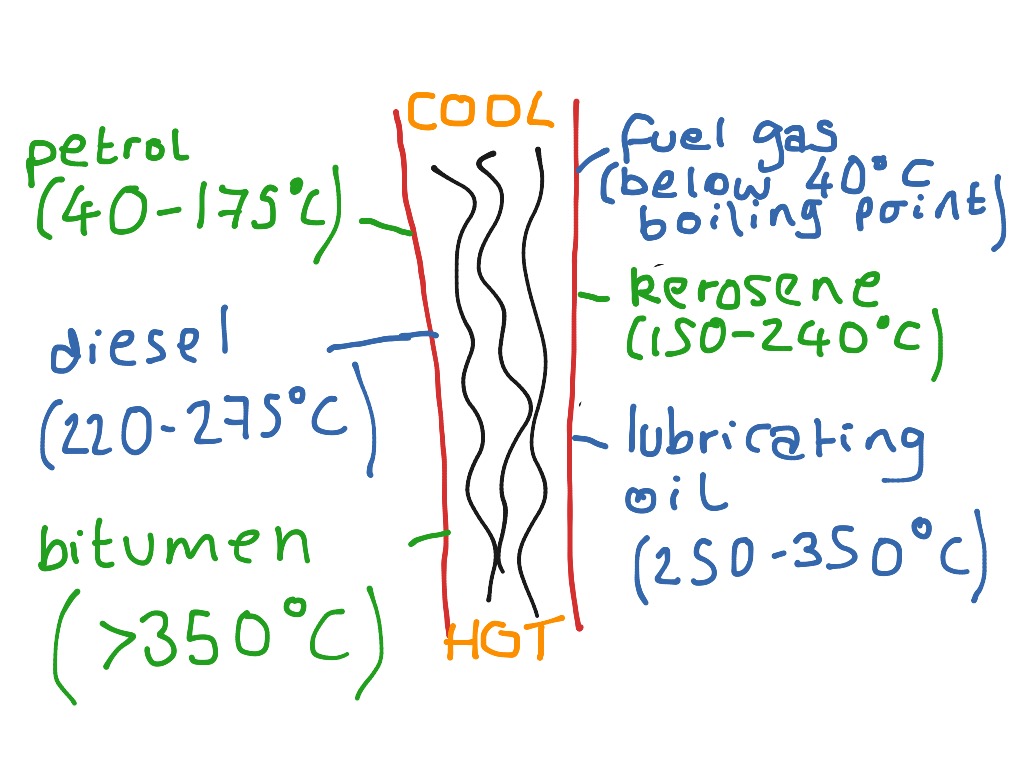 COOL
petrol
(40-175°C)
fuel gas
(below 40°C
boiling point)
kerosene
(150-240°C)
diesel
(220-275°C)
lubricating
oil
(250-350°C)
bitumen
(>350°C)
HOT